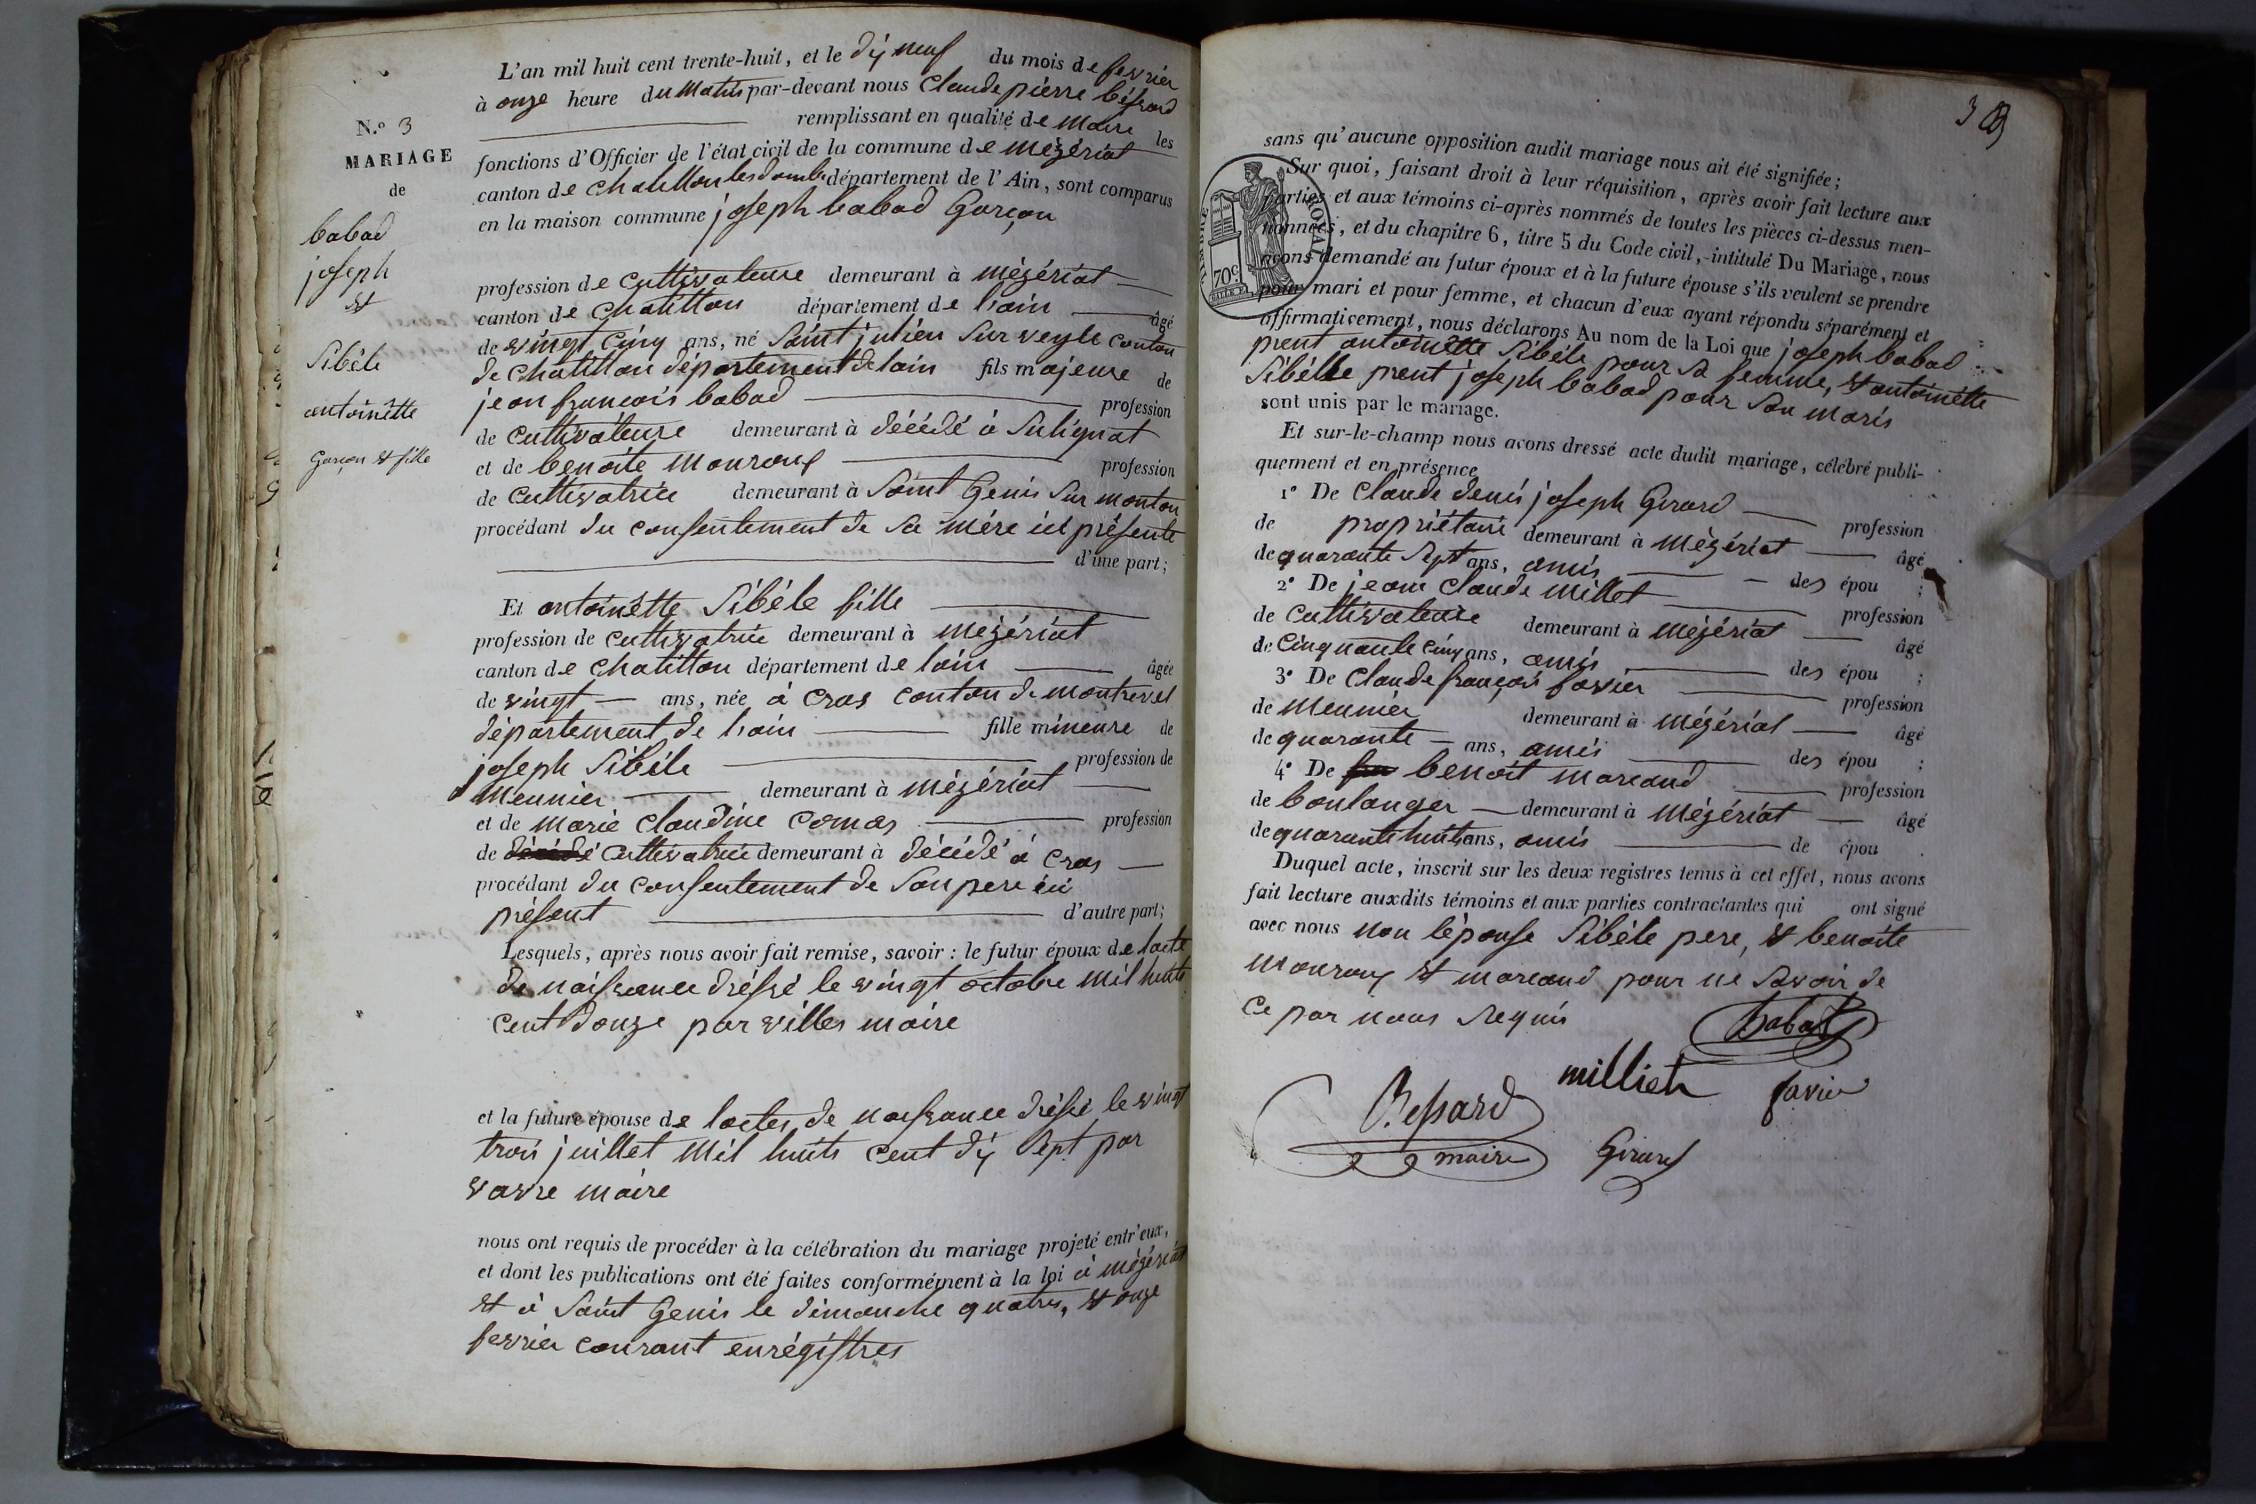 L'an mil huit cent trente-huit, et le dix neuf du mois de fevrier
à onze heure du matin par-devant nous Claude pierre béssard
remplissant en qualité de maire les
N.º 3
MARIAGE
de
babad
joseph
et
Sibéle
antoinêtte
Garçon et fille
fonctions d'Officier de l'état civil de la commune de mézériat
canton de chatillon les dombe département de l'Ain, sont comparus
en la maison commune joseph babad Garçon
profession de cultivateure demeurant à mézériat
canton de chatillon département de lain âgé
de vingt cinq ans, né Saint julien Sur veyle canton
de chatillon département de lain fils majeure de
jean francois babad profession
de cultivateure demeurant à décédé à Sulignat
et de benoite mouroux profession
de cultivatrice demeurant à Saint Genis Sur monton
procédant du consentement de Sa mère ici présente
d'une part;
Et antoinêtte Sibéle fille
profession de cultivatrice demeurant à mézériat
canton de chatillon département de lain âgée
de vingt ans, née à cras conton de montrevel
département de lain fille mineure de
joseph Sibéle profession de
meunier demeurant à mézériat
et de marie claudine comas profession
de décédé cultivatrice demeurant à décédé à cras
procédant du consentement de Son pere ici
présent d'autre part;
Lesquels, après nous avoir fait remise, savoir : le futur époux de lacte
de naissance dréssé le vingt octobre mil huits
cent douze par villes maire
et la future épouse de lactes de naissance dréssé le vingt
trois juillet mil huits cent dix Sept par
vavre maire
nous ont requis de procéder à la célébration du mariage projeté entr'eux,
et dont les publications ont été faites conformément à la loi à mézériat
et à Saint Genis le dimanche quatres, et onze
fevrier courant enrégistres
3
sans qu'aucune opposition audit mariage nous ait été signifiée;
Sur quoi, faisant droit à leur réquisition, après avoir fait lecture aux
parties et aux témoins ci-après nommés de toutes les pièces ci-dessus men-
tionnées, et du chapitre 6, titre 5 du Code civil, intitulé Du Mariage, nous
avons demandé au futur époux et à la future épouse s'ils veulent se prendre
pour mari et pour femme, et chacun d'eux ayant répondu séparément et
affirmativement, nous déclarons Au nom de la Loi que joseph babad
prent antoinêtte Sibéle pour Sa femme, et antoinêtte
Sibélle prent joseph babad pour Son maris
sont unis par le mariage.
TIMBRE ROYAL
70c.
Et sur-le-champ nous avons dressé acte dudit mariage, célébré publi-
quement et en présence
1º De Claude denis joseph Girard profession
de propriétaire demeurant à mézériat âgé
de quarante Sept ans, amis des épou ;
2º De jean claude millet profession
de cultivateure demeurant à mézériat âgé
de cinquante cinq ans, amis des épou ;
3º De Claude françois favier profession
de meunier demeurant à mézériat âgé
de quarante ans, amis des épou ;
4º De benoit marcand profession
de boulanger demeurant à mézériat âgé
de quarante huit ans, amis de épou .
Duquel acte, inscrit sur les deux registres tenus à cet effet, nous avons
fait lecture auxdits témoins et aux parties contractantes qui ont signé
avec nous non lépouse Sibéle pere, et benoite
mouroux et marcand pour ne Savoir de
Ce par nous requis
babad
milliet favier
Bessard
maire Girard